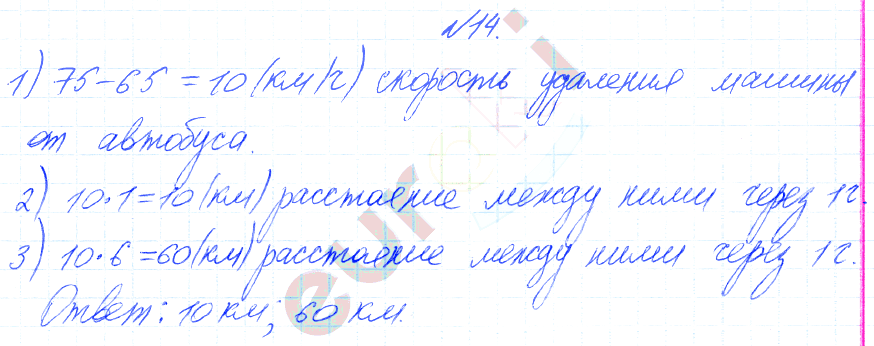 №14.
1) 75-65=10 (км/ч) скорость удаления машины
от автобуса.
2) 10·1=10 (км) расстояние между ними через 1 ч.
3) 10·6=60 (км) расстояние между ними через 1 ч.
Ответ: 10 км; 60 км.